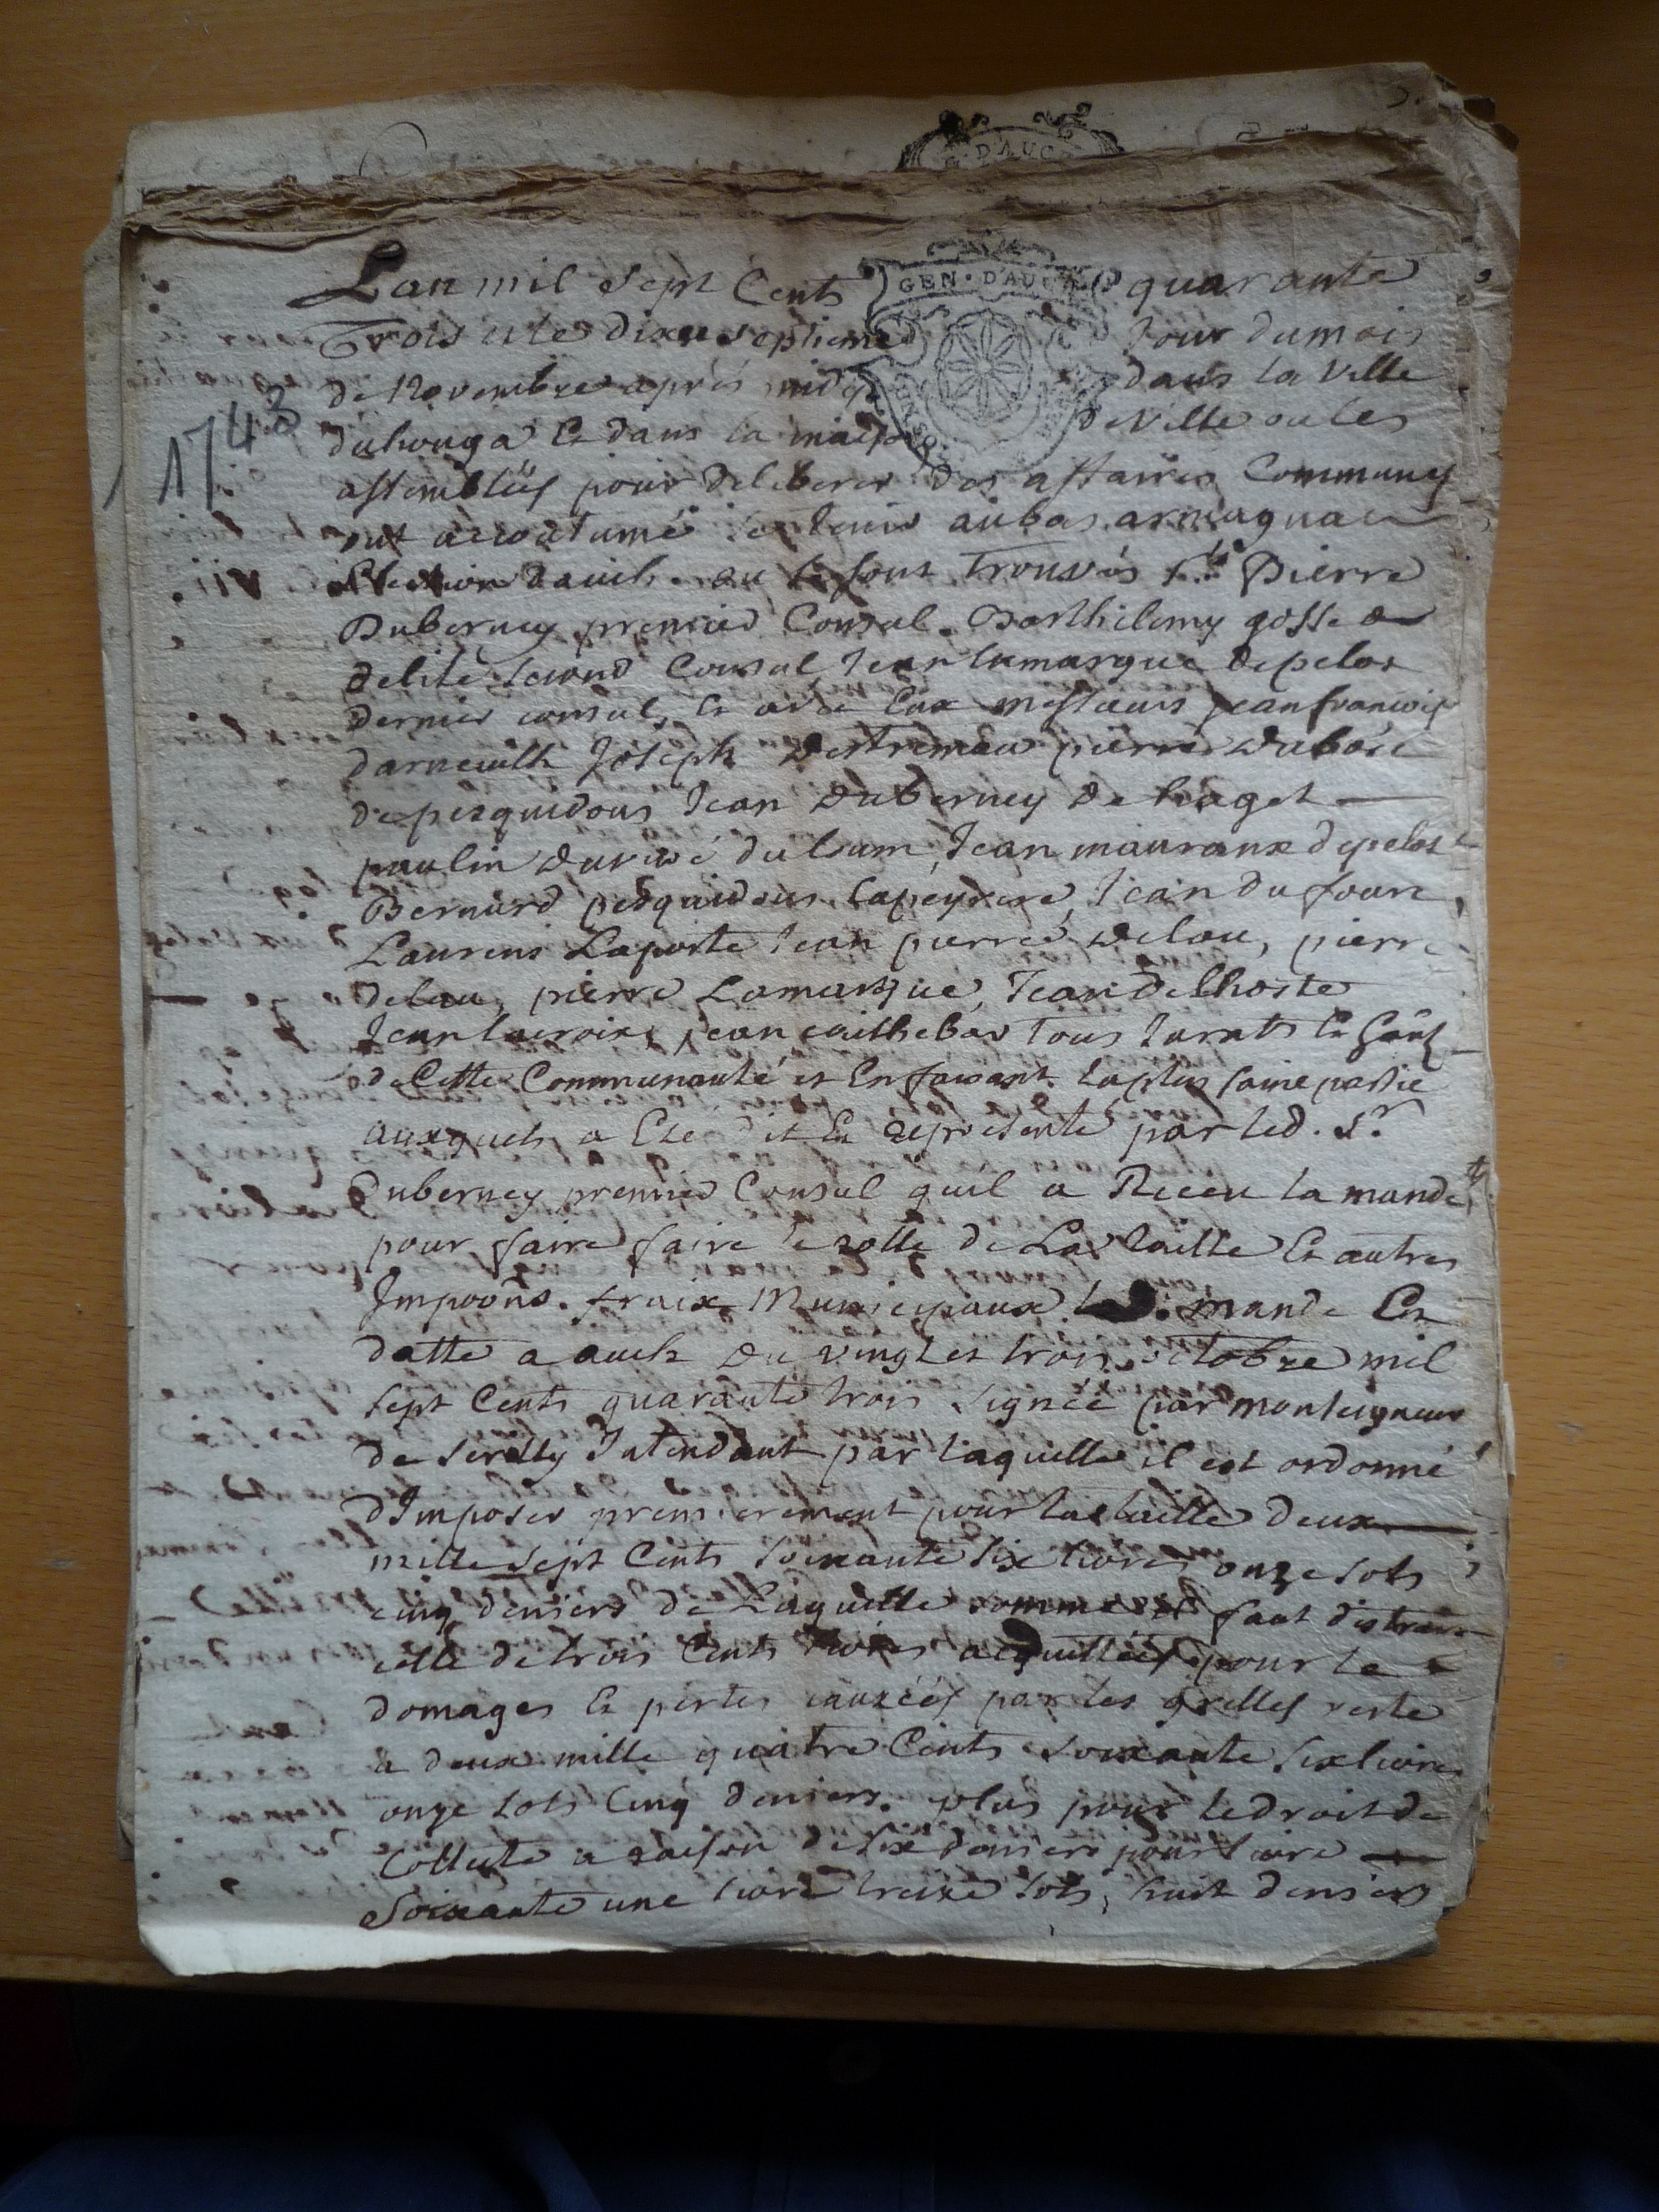 G. D'AUC
GEN. D'AUCH
1743
Lan mil sept Cents quarante
Trois et le dixeseptieme Jour du mois
de Novembre apres midy dans la Ville
duhouga Et dans la maison de Ville ou les
assembléés pour deliberer des affaires Communes
ont accoutumé se tenir aubas armagnac
Election dauch ou se sont Trouvés Pierre
Duberney premier Consul Barthelemy gosse
delile second Consul Jean lamarque depelot
dernier consul, Et avec Eux messieurs jean francois
darneuilh Joseph destremau pierre dubosc
depesquidous Jean duberney de
paulin ducussé du Jean mauranx depelot
Bernard pesquidous Lapeyrere, Jean dufour,
Laurens Laporte Jean pierre delau, pierre
delau, pierre Lamarque, Jean delhoste
Jean lacroix, jean cailhebar Tous Jurats Et
de Cette Communauté et En faisant la plus saine partie
auxquels a Eté dit Et representé par led. Sr
Duberney premier Consul quil a Receu la mande
pour faire faire le rolle de La taille Et autres
Impoons. fraix Municipaux mande En
datte a auch du vingt et trois octobre mil
sept Cents quarante trois signéé par monseigneur
de serilly Intendant par laquelle il est ordonné
dImposer premierement pour la taille deux
mille sept Cents soixante six livres onze sols
cinq deniers de Laquelle somme il faut distraire
celle de trois Cents livres pour le
domages Et pertes cauzéés par les grelles reste
a deux mille quatre Cents soixante six livres
onze sols Cinq deniers. plus pour le droit de
Collecte a raison de six deniers pour livre
Soixante une livre treize sols, huit deniers